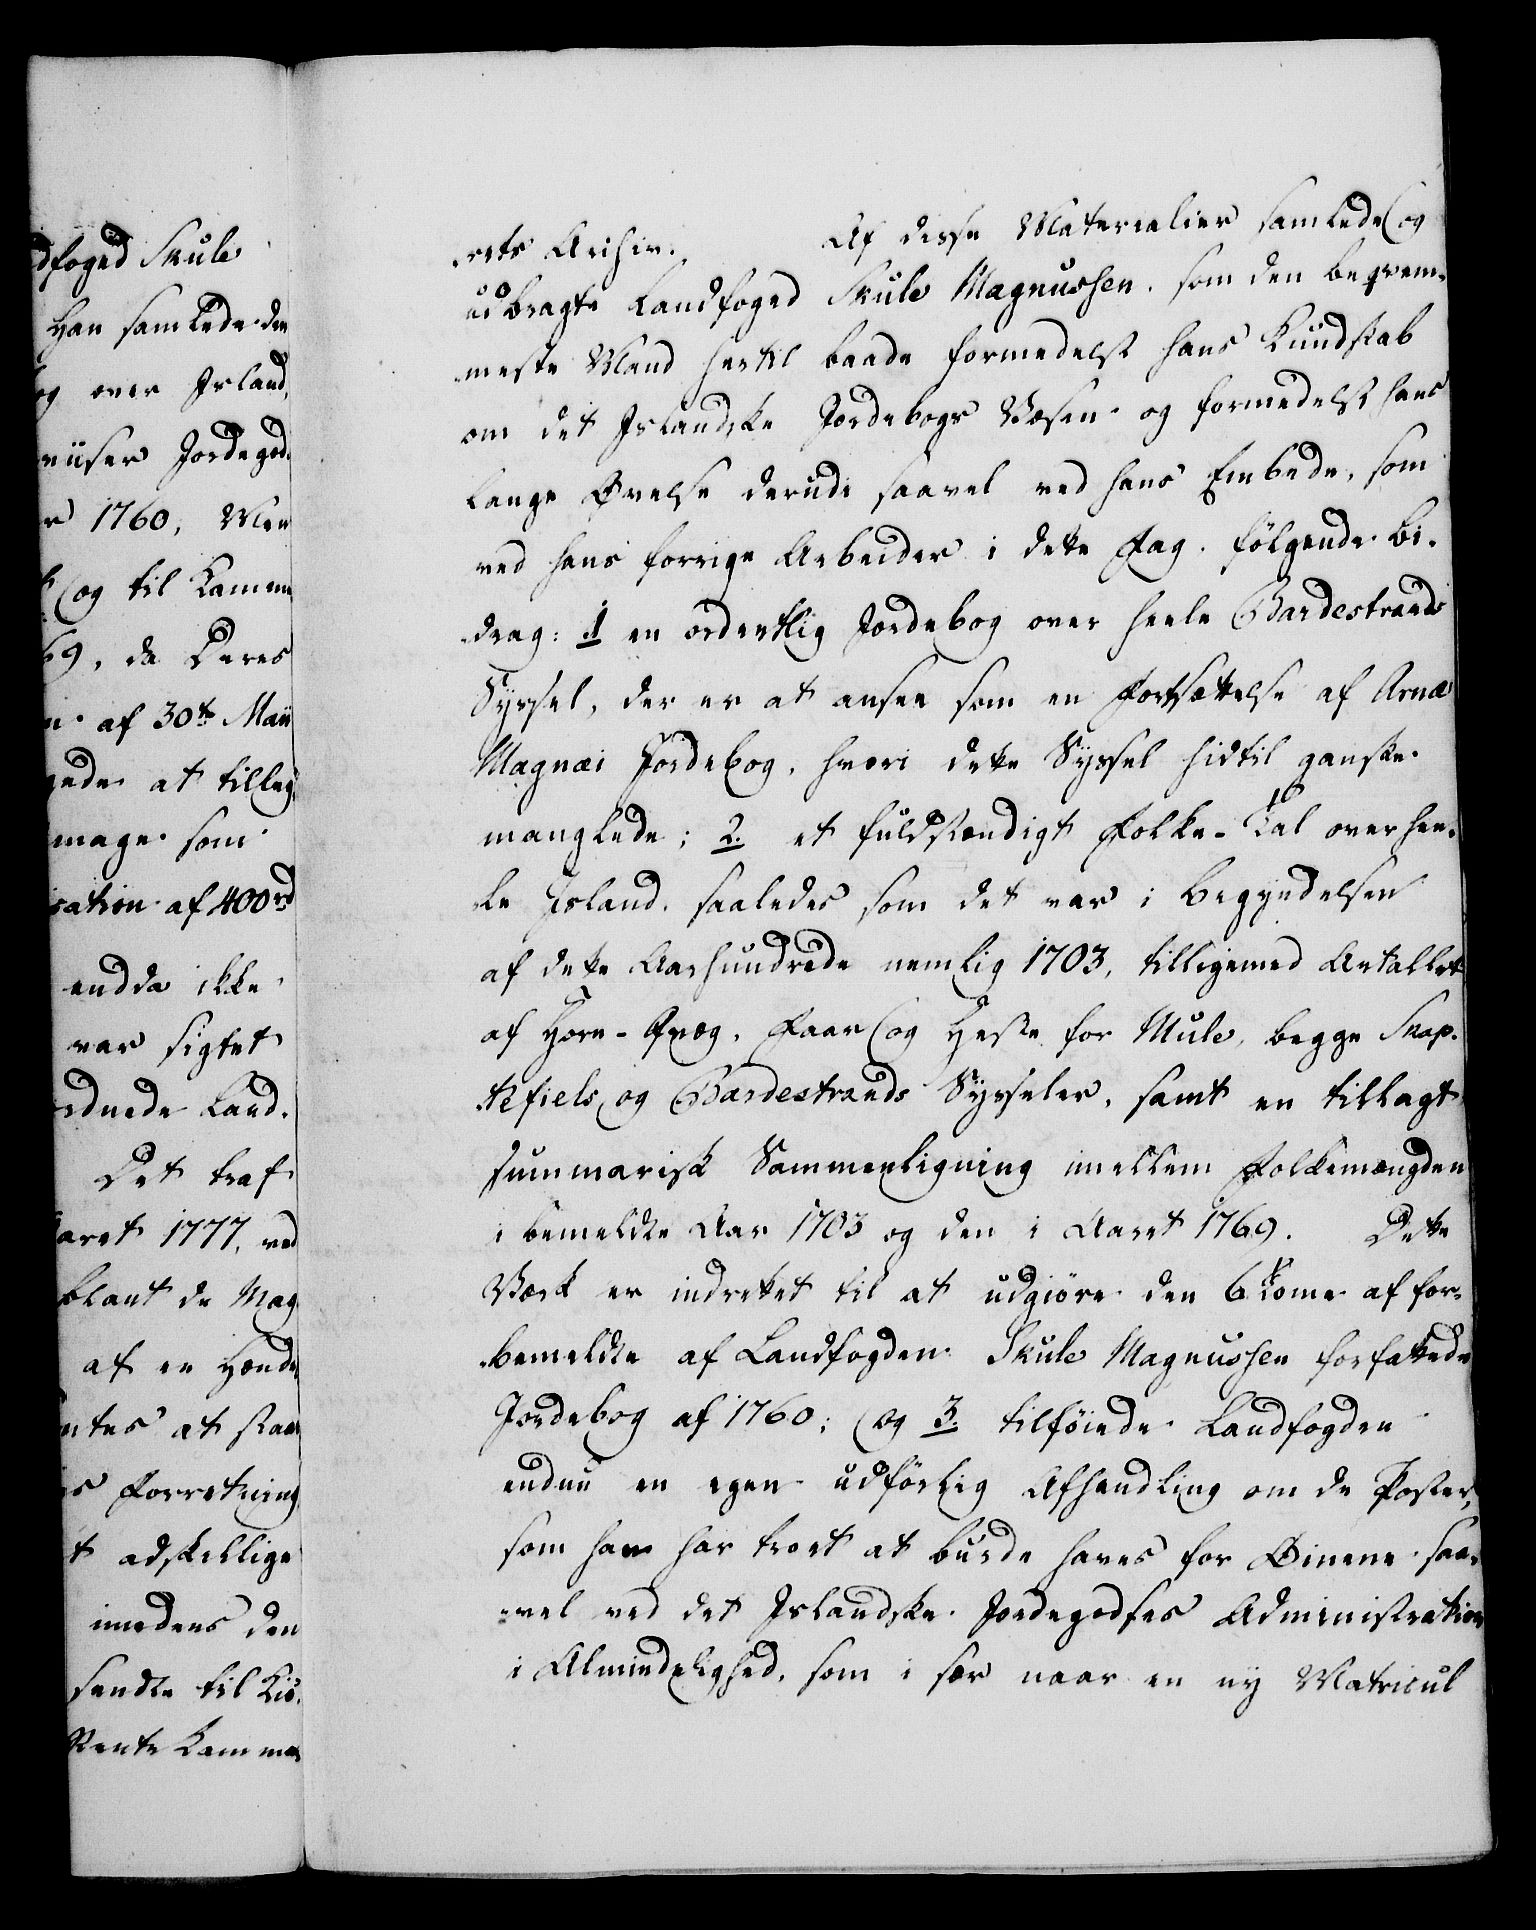 dfoged Skule
Han samlede den
og over Island,
1760, Men
og til Kamme
69, da Deres
af 30te Maii
gede at tilleg
mage som
sation af 400rd
endda ikke
var sigtet
rdnede Land-
Det traf
aret 1777, ved
blant de Mag
af en Hænde
ntes at staae
s Forretning
t adskillige
imedens den
sendte til Kiö-
Rente Kammer
rets Archiv. Af disse Materialier samlede og
udbragte Landfoged Skule Magnussen, som den beqvem-
meste Mand hertil baade formedelst hans Kundskab
om det Islandske Jordebogs Væsen og formedelst hans
lange Øvelse derudi saavel ved hans Embede, som
ved hans forrige Arbeider i dette Fag, følgende bi-
drag: 1 en ordentlig Jordebog over heele Bardestrands
Syssel, der er at ansee som en Fortsættelse af Arnæ
Magnæi Jordebog, hvori dette Syssel hidtil ganske
manglede; 2. et fuldstændigt Folke-Tal over hee-
le Island, saaledes som det var i begyndelsen
af dette Aarhundrede nemlig 1703, tilligemed Antallet
af Horn-Qvæg, Faar og Heste for Mule, begge Skap-
tefiels og Bardestrands Sysseler, samt en tillagt
summarisk Sammenligning imellem Folkemængden
i bemeldte Aar 1703 og den i Aaret 1769. Dette
Værk er indrettet til at udgiøre den 6te Tome af for-
bemeldte af Landfogden Skule Magnussen forfattede
Jordebog af 1760; og 3. tilföiede Landfogden
endnu en egen udförlig Afhandling om de Poster,
som han har troet at burde haves for Øinene saa-
vel ved det Islandske Jordegodses Administration
i Almindelighed, som i sær naar en ny Matricul